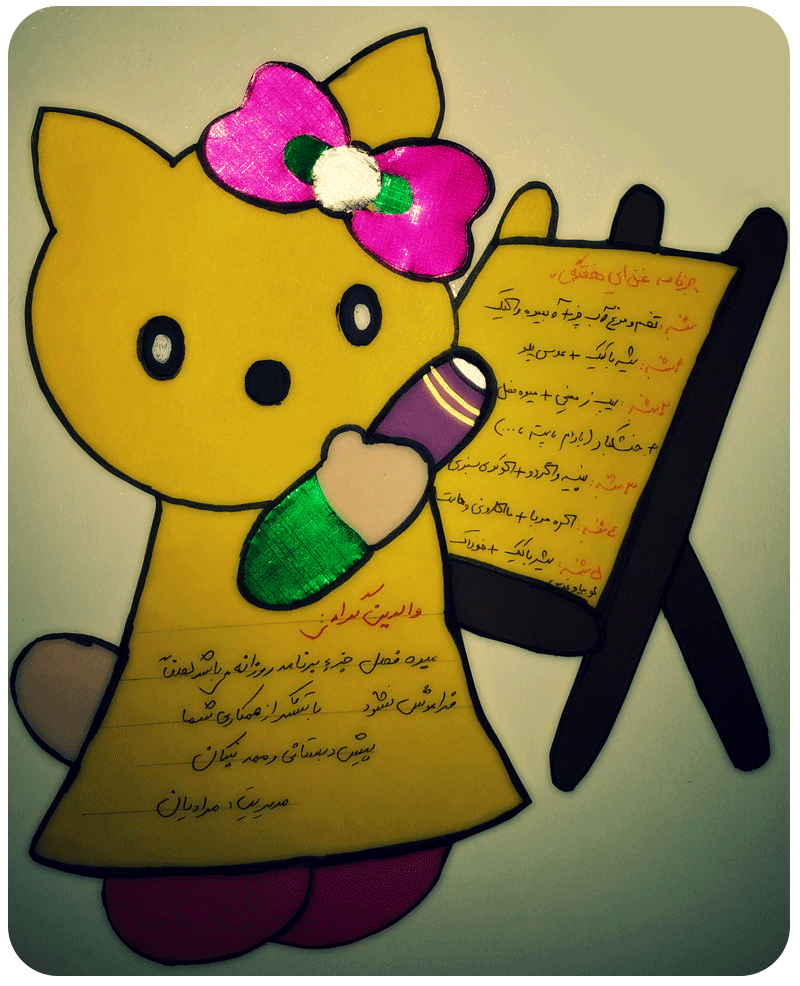 برنامه غذایی هفتگی:
شنبه: تخم و مرغ آب پز + آبمیوه و کیک
۱شنبه: شیر با کیک + عدس پلو
۲شنبه: سیب زمینی + میوه فصل
+ خشکبار (بادام، پسته، ...)
۳شنبه: پنیر و گردو + کوکوی سبزی
۴شنبه: کره مربا + ماکارونی و ماست
۵شنبه: شیر با کیک + خوراک
لوبیا
والدین گرامی:
میوه فصل جزء برنامه روزانه می باشد لطفاً
فراموش نشود با تشکر از همکاری شما
پیش دبستانی و مهد نیکان
مدیریت: مرادیان